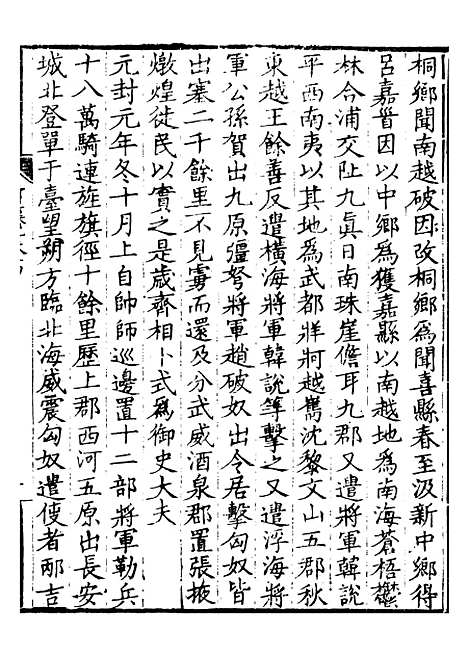 桐鄉聞南越破因改桐鄉爲聞喜縣春至汲新中鄉得
呂嘉首因以中鄉爲獲嘉縣以南越地爲南海蒼梧欎
林合浦交阯九眞日南珠崖儋耳九郡又遣將軍韓說
平西南夷以其地爲武都牂牁越嶲沈黎文山五郡秋
東越王餘善反遣橫海將軍韓說等擊之又遣浮海將
軍公孫賀出九原彊弩將軍趙破奴出令居擊匈奴皆
出塞二千餘里不見虜而還及分武威酒泉郡置張掖
燉煌徙民以實之是歲齊相卜式爲御史大夫
元封元年冬十月上自帥師巡邊置十二部將軍勒兵
十八萬騎連旌旗徑十餘里歷上郡西河五原出長安
城北登單于臺望朔方臨北海威震匈奴遣使者郍吉